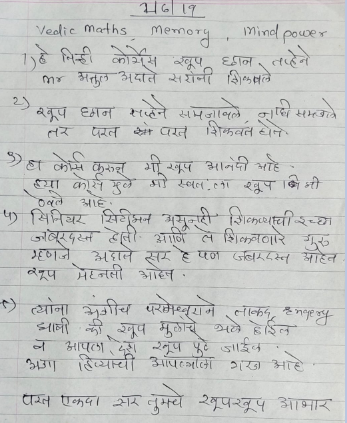 1/6/19
Vedic maths, Memory, Mind power
1) हे तिन्ही कोर्सेस खूप छान तर्‍हेने
mr अतुल अदाते सरांनी शिकवले
2) खूप छान तर्‍हेने समजावले, नाही समजले
तर परत परत शिकवत होते.
3) हा कोर्स करून मी खूप आनंदी आहे.
ह्या कोर्स मुळे मी स्वतःला खूप
ठेवले आहे.
४) सिनियर सिटीझन असूनही शिकण्याची इच्छा
जबरदस्त होती आणि ते शिकवणारे गुरु
म्हणजे अदाते सर हे पण जबरदस्त आहेत
खूप मेहनती आहेत.
५) त्यांना अशीच परमेश्वराने ताकद
द्यावी की खूप मुलांचे भले होईल
व आपला देश खूप पुढे जाईल.
अशा हिऱ्याची आपल्याला गरज आहे.
परत एकदा सर तुमचे खूपखूप आभार